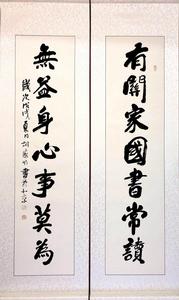 有關家國書常讀
無益身心事莫為
歲次戊戌夏月